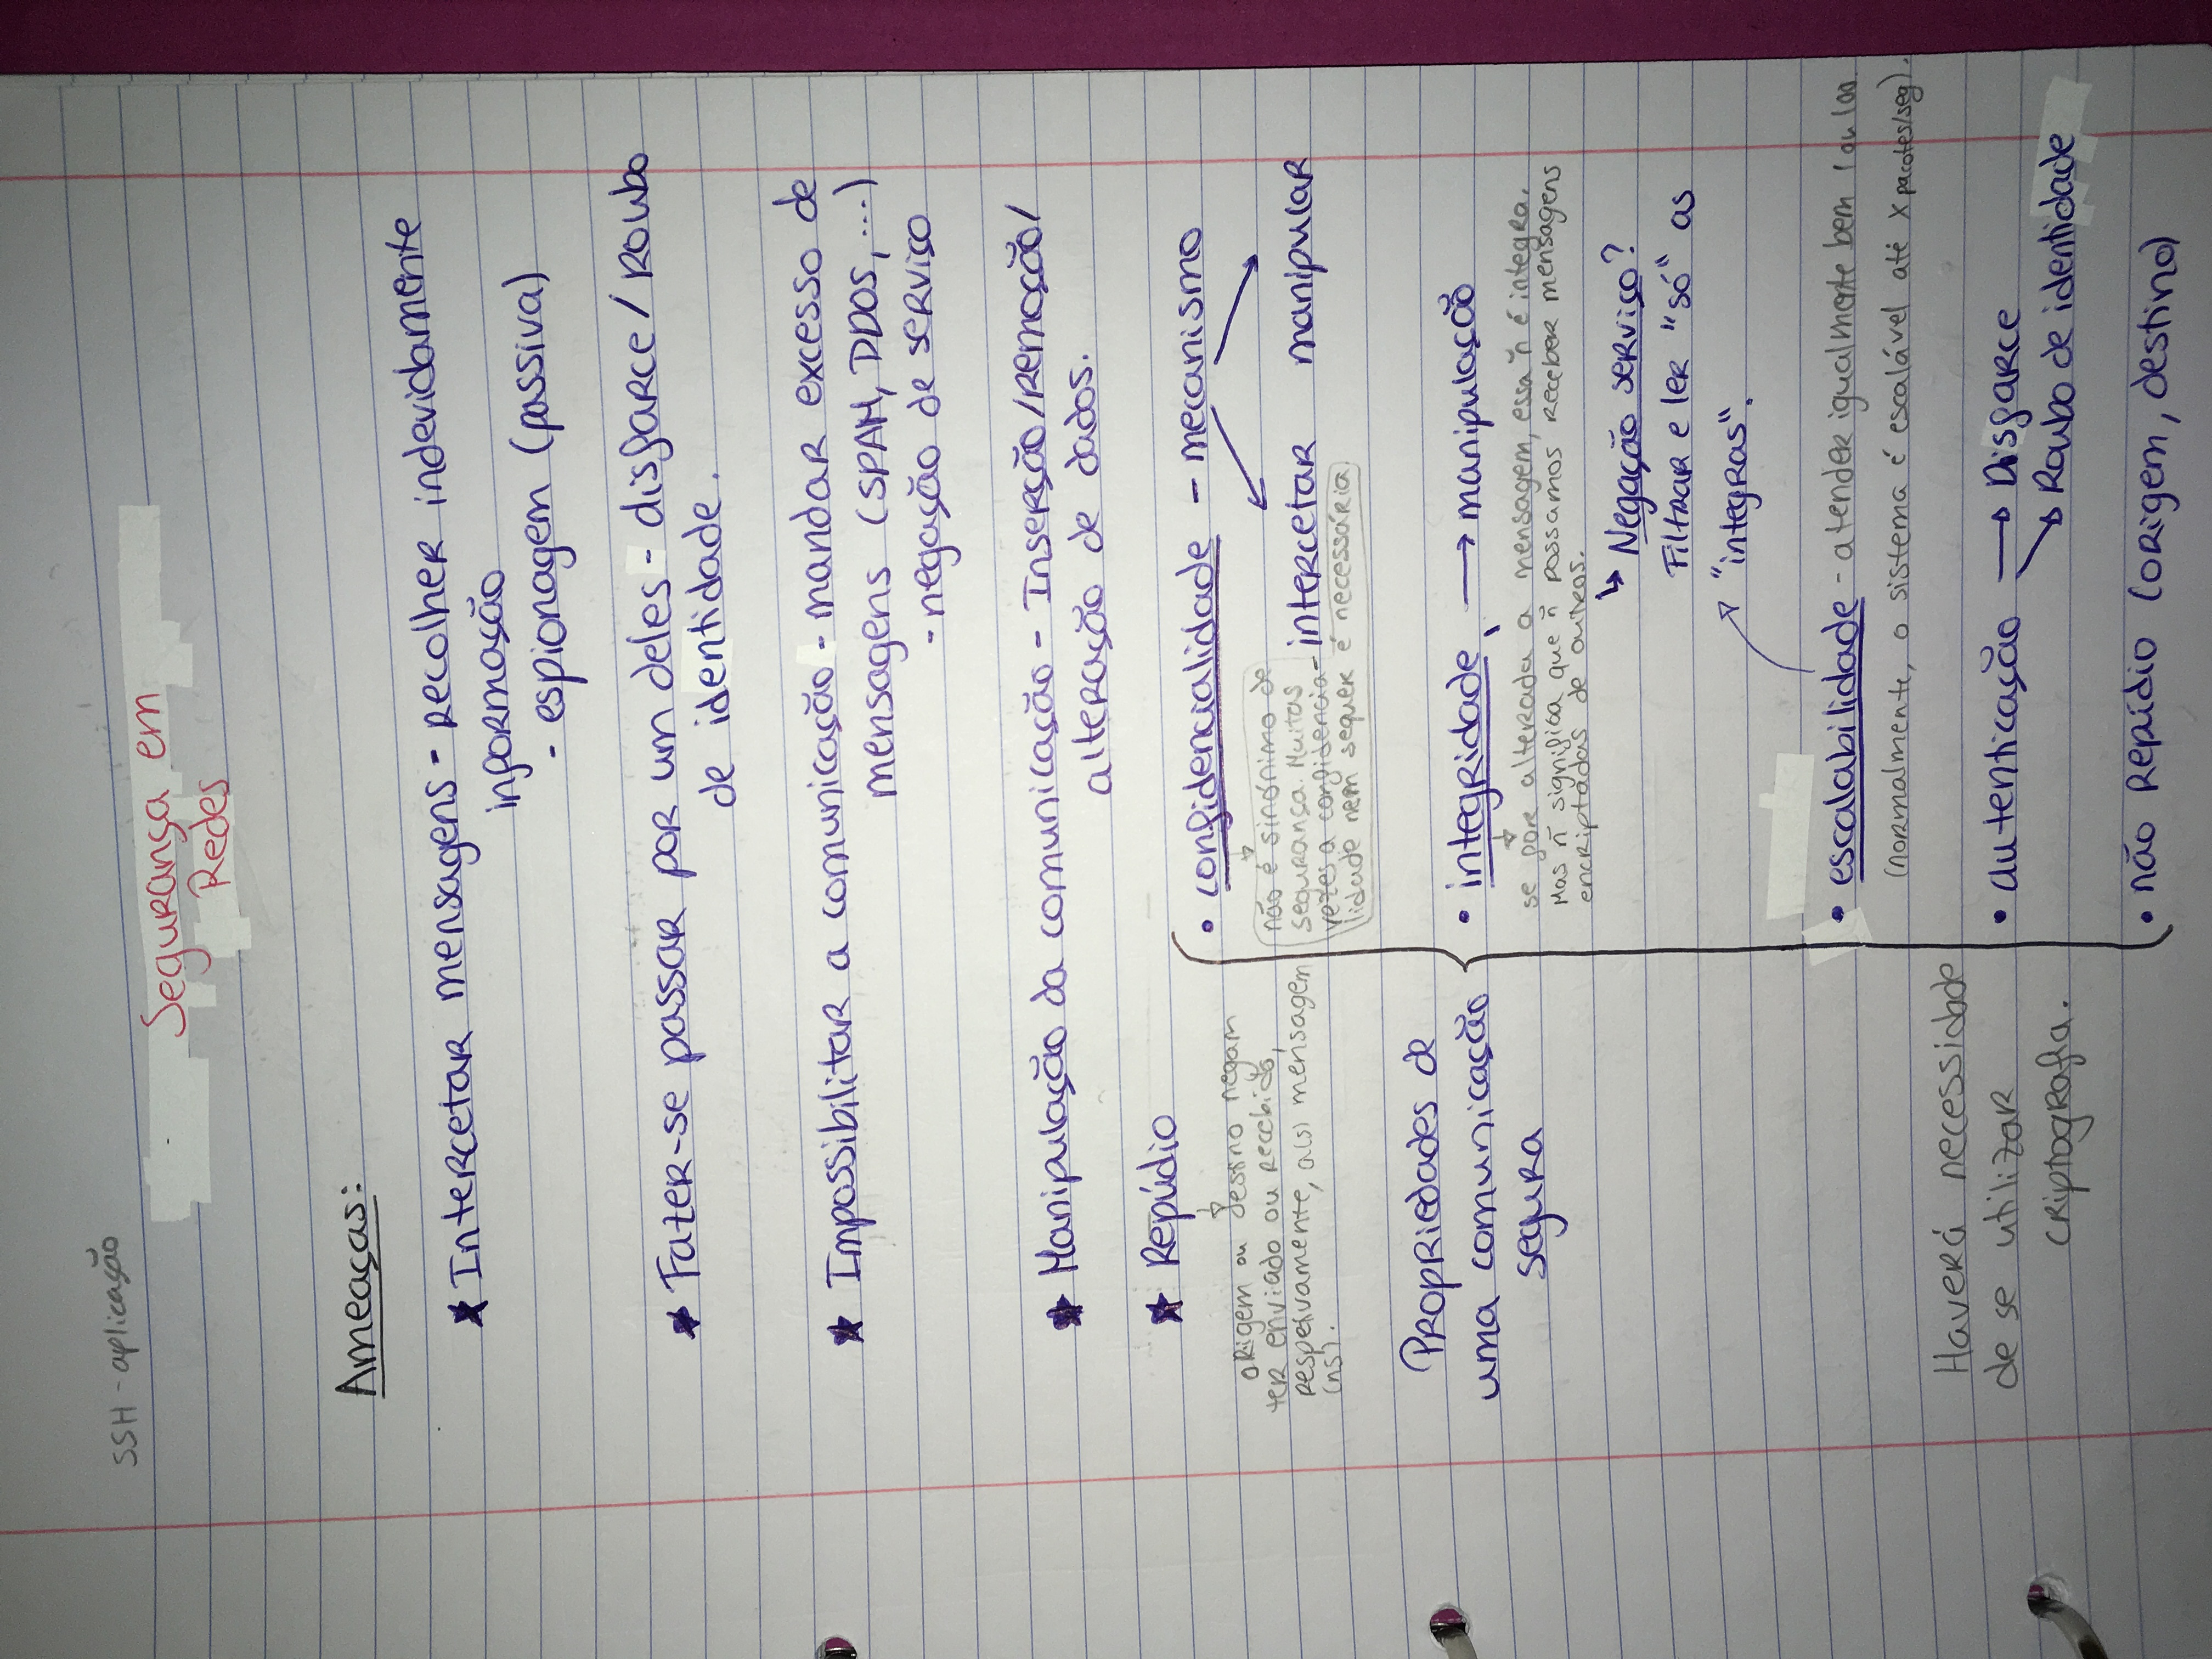 SSH - aplicação
Segurança em
Redes
Ameaças:
★ Intercetar mensagens - recolher indevidamente
informação
- espionagem (passiva)
★ Fazer-se passar por um deles - disfarce / roubo
de identidade.
★ Impossibilitar a comunicação - mandar excesso de
mensagens (SPAM, DDOS, ...)
- negação de serviço
★ Manipulação da comunicação - Inserção/remoção/
alteração de dados.
★ Repúdio
origem ou destino negam
ter enviado ou recebido,
respetivamente, a(s) mensagem
(ns).
Propriedades de
uma comunicação
segura
• confidencialidade - mecanismo
intercetar manipular
não é sinónimo de
segurança. Muitas
vezes a confidencia-
lidade nem sequer é necessária
• integridade → manipulação
se fôr alterada a mensagem, essa ñ é integra.
Mas ñ significa que ñ possamos receber mensagens
encriptadas de outros.
↳ Negação serviço?
Filtrar e ler "só" as
"integras".
• escalabilidade - atender igualmente bem 1 ou 100.
(normalmente, o sistema é escalável até x pacotes/seg).
Haverá necessidade
de se utilizar
criptografia.
• autenticação → Disfarce
→ Roubo de identidade
• não repúdio (origem, destino)